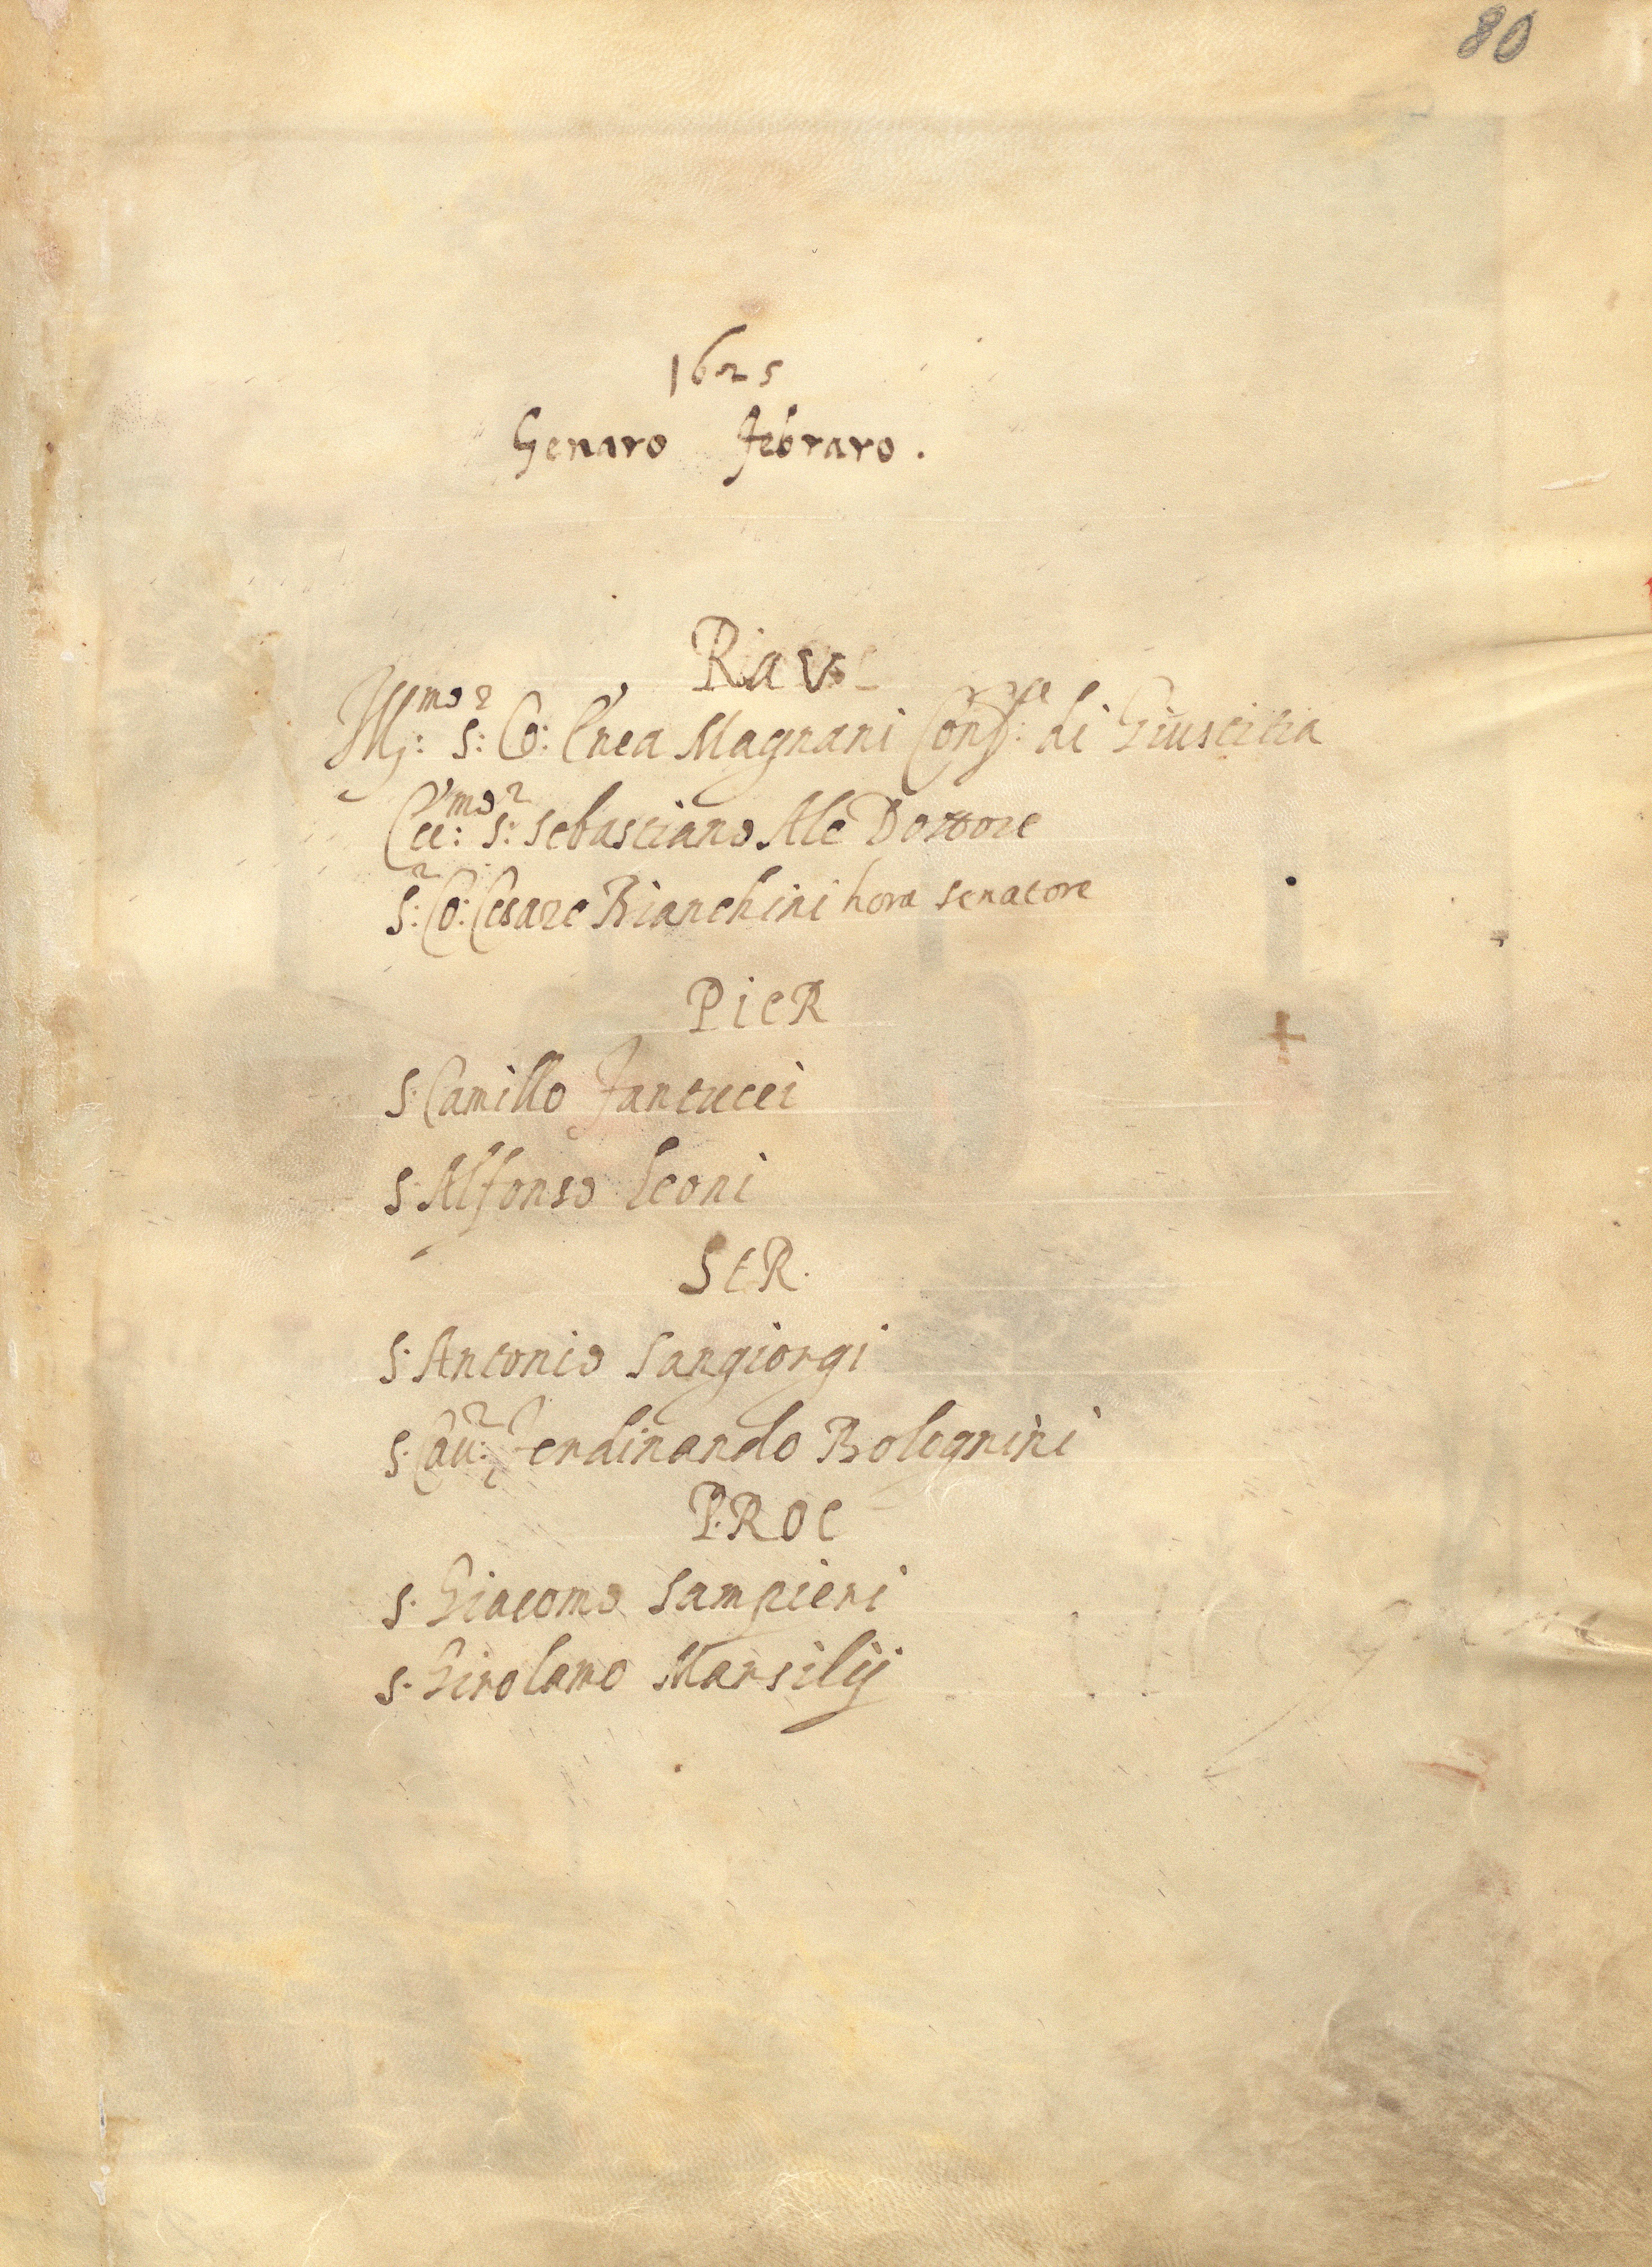 80
1625
Genaro Febraro.
Rave
Ill:mo S:r Co: Enea Magnani Conf:re di Giustitia
Ecc:mo S:r Sebastiano Ale Dottore
S:r Co: Cesare Bianchini hora senatore
PieR
S: Camillo Fantucci
S: Alfonso Leoni
SteR.
S: Antonio Sangiorgi
S: Cau:r Ferdinando Bolognini
P.ROC
S: Giacomo Sampieri
S: Girolamo Marsilij